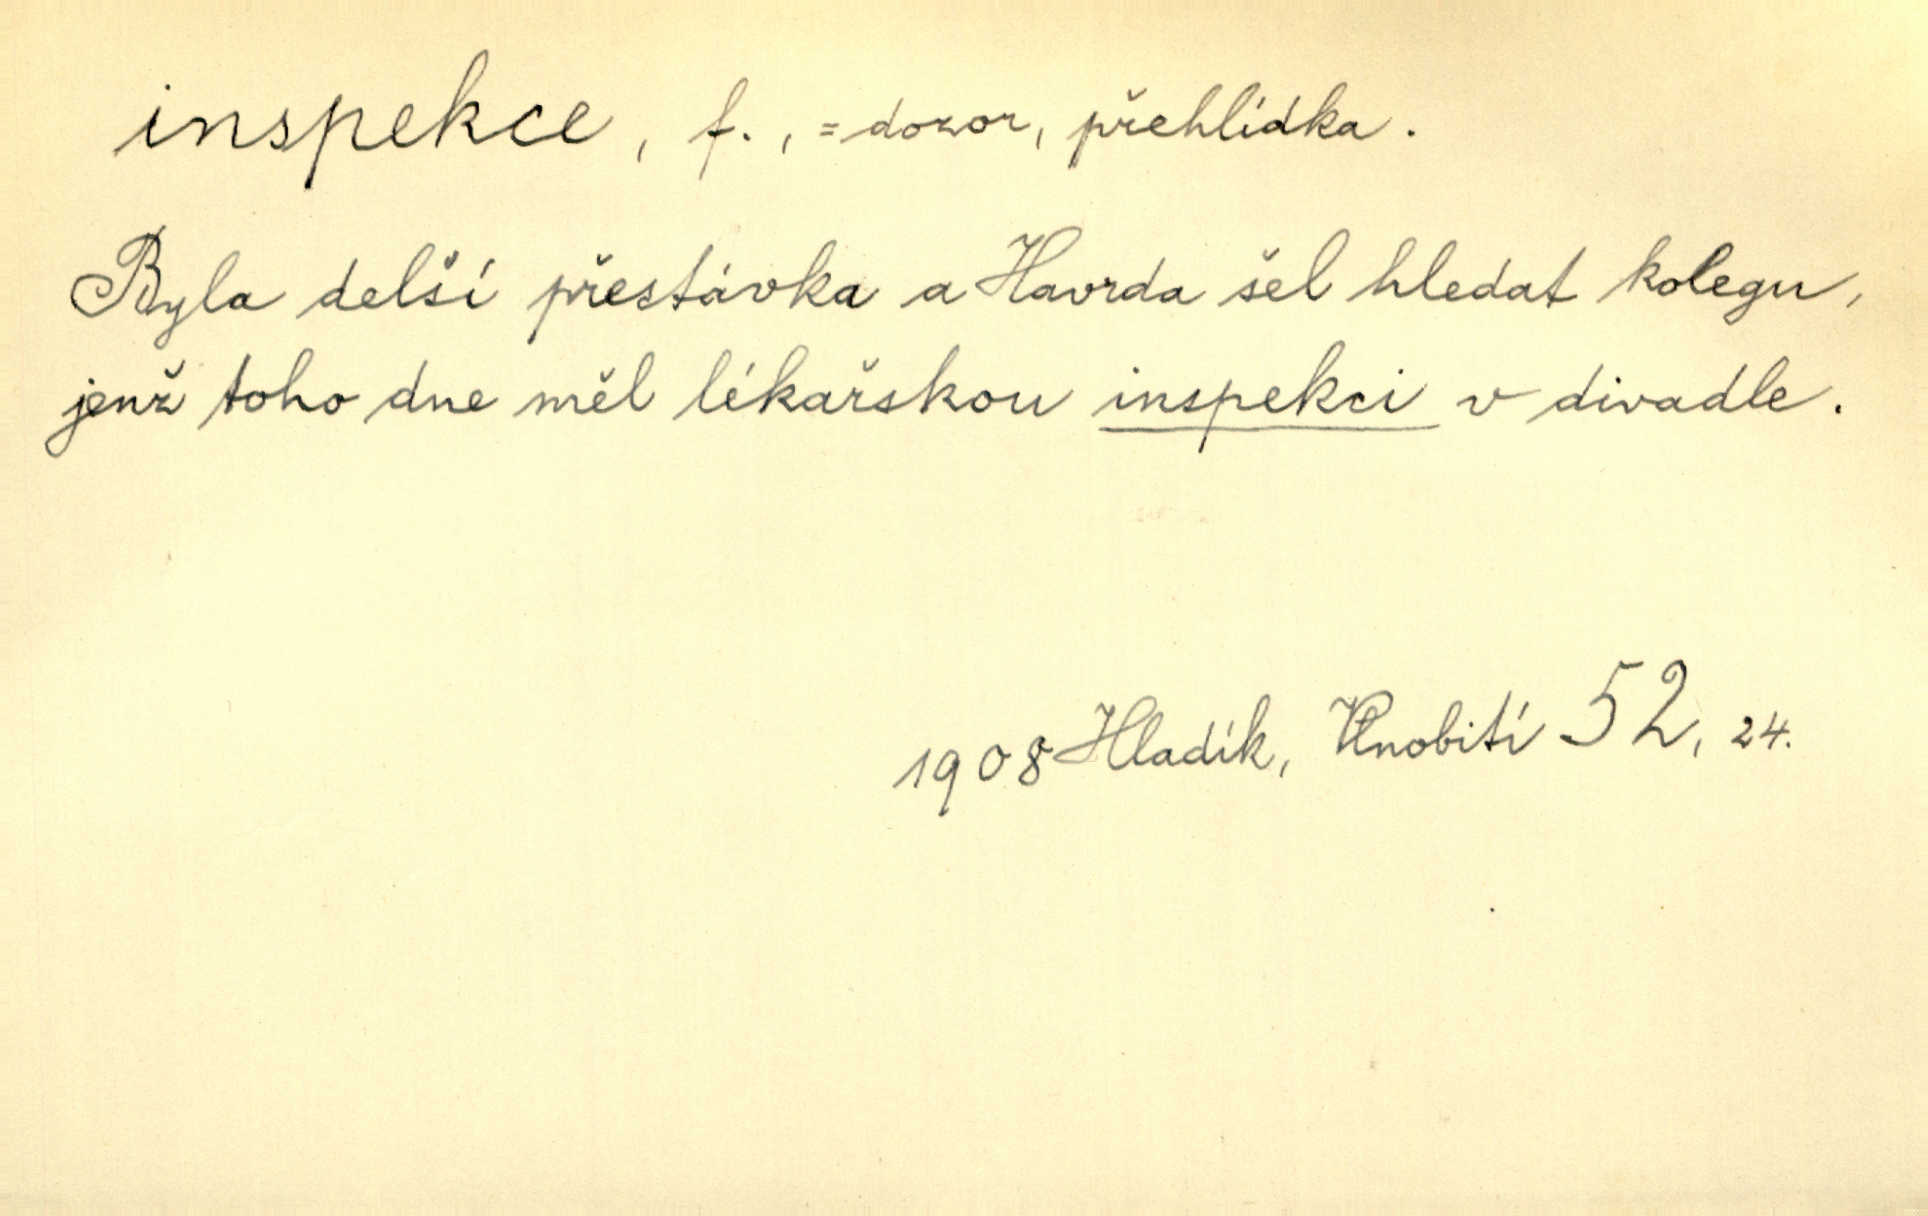 inspekce, f., = dozor, přehlídka.
Byla delší přestávka a Havrda šel hledat kolegu,
jenž toho dne měl lékařskou inspekci v divadle.
1908 Hladík, Vlnobití 52, 24.